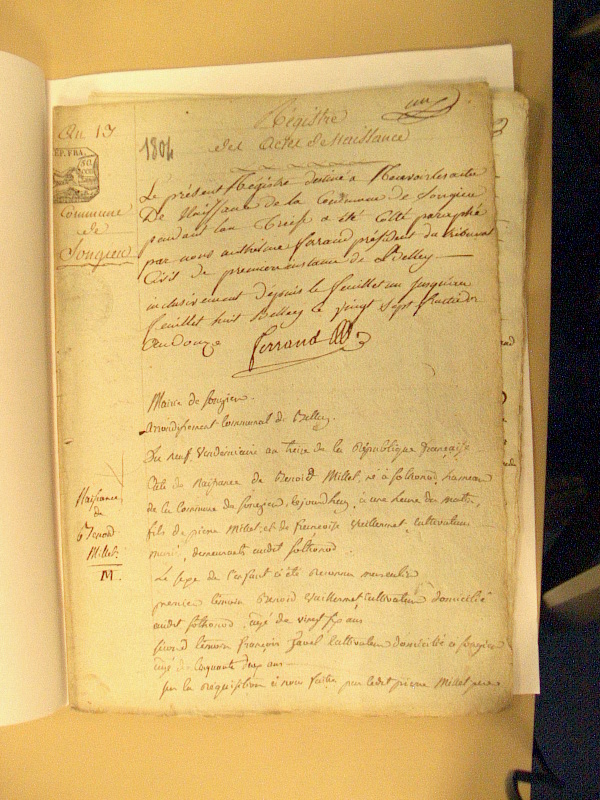 un
Registre
An 13
1804
des Actes de Naissance
REP. FRA.
Commune
de
Songieu
Le présent Registre destiné a Recevoir les actes
De Naissance de la Commune de Songieu
pendant l'an Treise a été Cotté paraphé
par nous anthelme farand président du tribunal
Civil de premiere instance de Belley
inclusivement Depuis le feuillet un jusqu'au
feuillet huit Belley le vingt sept fructidor
an douze
ferrand
Mairie de Songieu
Arrondissement Communal de Belley
Du neuf Vendemiaire an treize de la République française
Naissance
de
Benoid
Millet
M.
acte de Naissance de Benoid Millet, né à Sothonod hameau
de la Commune de Songieu, lejourdhui, à une heure du matin,
fils de pierre Millet et de françoise Vuillermet, Cultivateur
marié, demeurants audit Sothonod
Le sexe de l'enfant a été reconnu masculin
premier témoin Benoid Vuillermet Cultivateur domicilié
audit Sothonod, agé de vingt ans
second témoin françois Javel Cultivateur domicilié a Songieu
agé de ans
sur la requisition à nous faitte par ledit pierre Millet pere